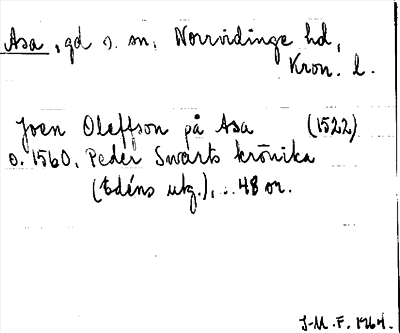 Asa, gd o. sn, Norrvidinge hd,
Kron. l.
Joen Oleffson på Asa (1522)
o. 1560. Peder Swarts krönika
(Edéns utg.), s. 48 or.
J-M. F. 1964.